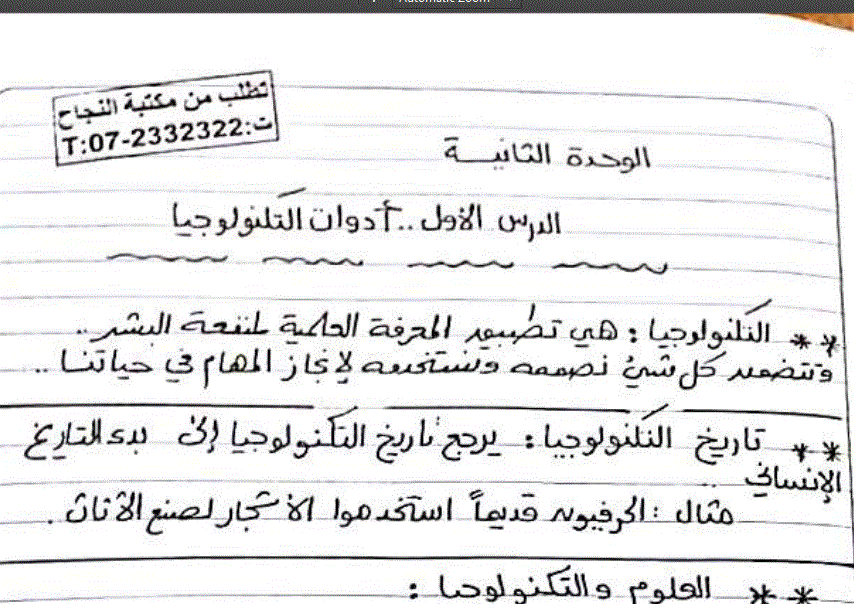 Automatic Zoom
تطلب من مكتبة النجاح
ت:T:07-2332322
الوحدة الثانية
الدرس الأول.. أدوات التكنولوجيا
** التكنولوجيا: هي تطبيق المعرفة العلمية لمنفعة البشر..
وتتضمن كل شيئ نصممه ونستخدمه لإنجاز المهام في حياتنا..
** تاريخ التكنولوجيا: يرجع تاريخ التكنولوجيا إلى بدء التاريخ
الإنساني..
مثال: الحرفيون قديماً استخدموا الأشجار لصنع الأثاث.
** العلوم والتكنولوجيا: